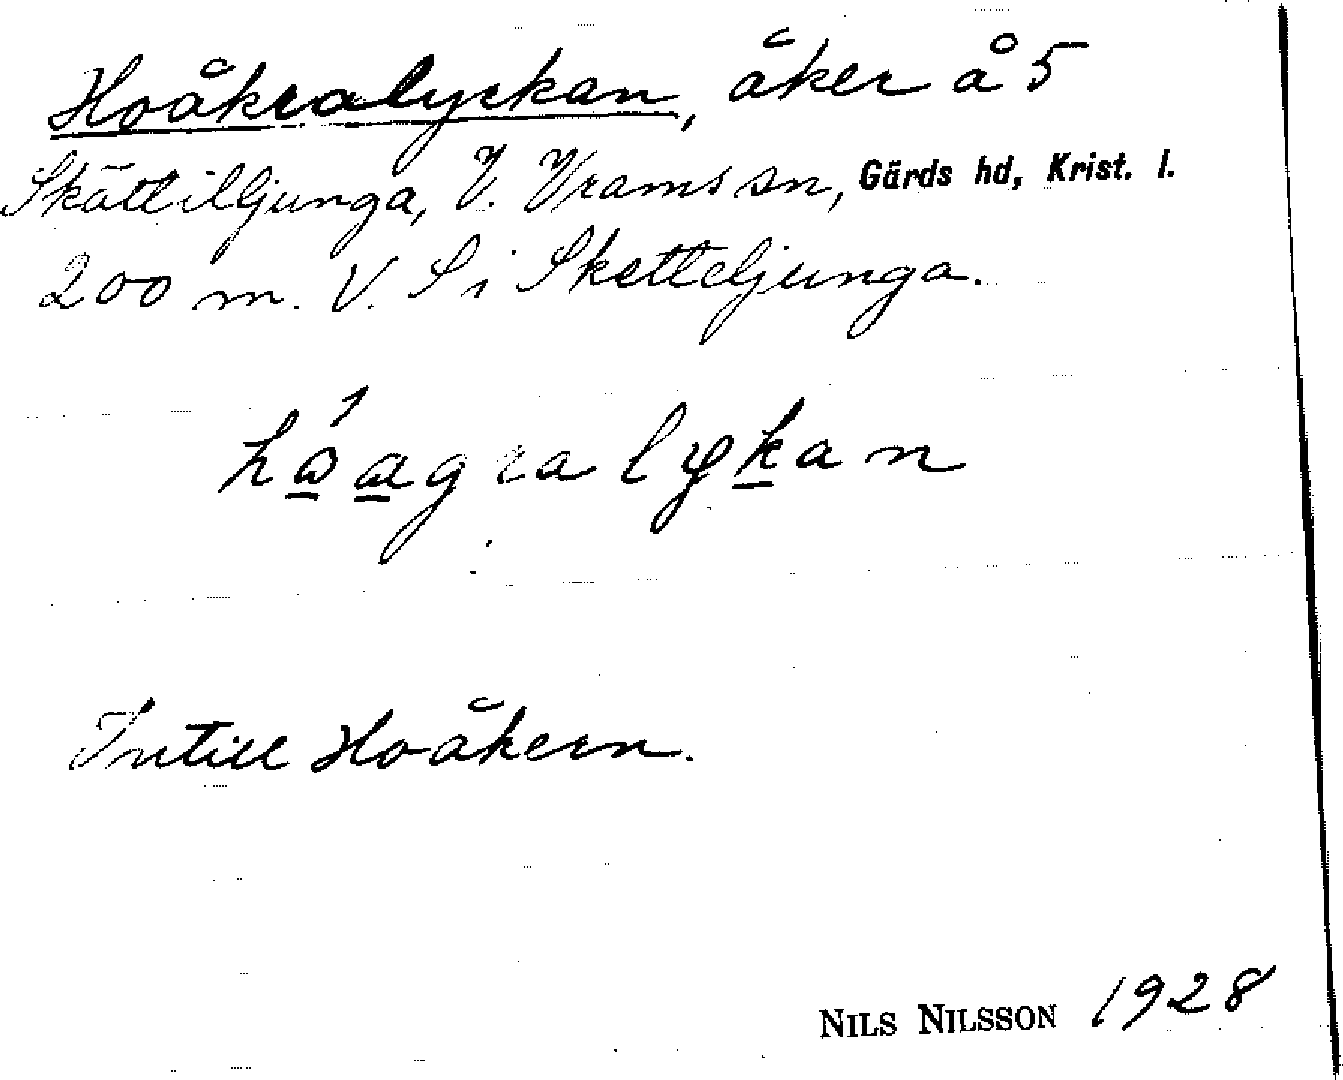 Hoåkralyckan, åker å 5
Skättilljunga, V. Vrams sn, Gärds hd, Krist. l.
200 m. V. S i Sketteljunga.
Intill Hoåkern.
NILS NILSSON 1928